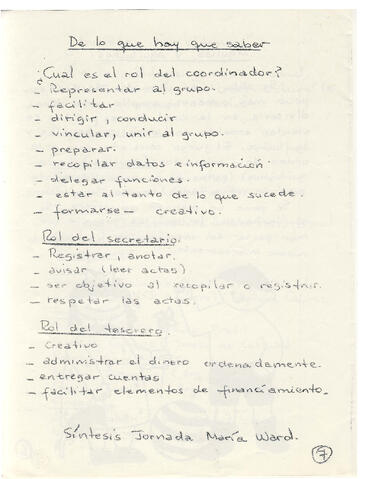 De lo que hay que saber
¿Cual es el rol del coordinador?
- Representar al grupo.
- facilitar
- dirigir, conducir
- vincular, unir al grupo.
- preparar.
- recopilar datos e información.
- delegar funciones.
- estar al tanto de lo que sucede.
- formarse - creativo.
Rol del secretario.
- Registrar, anotar.
- avisar (leer actas)
- ser objetivo al recopilar o registrar.
- respetar las actas.
Rol del tesorero.
- creativo
- administrar el dinero ordenadamente.
- entregar cuentas
- facilitar elementos de financiamiento.
Síntesis Jornada María Ward.
7